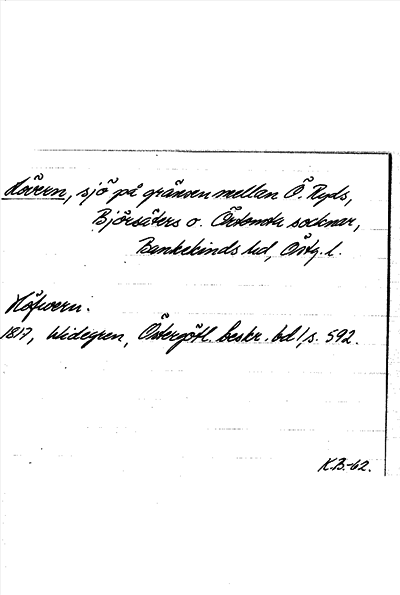 Hövern, sjö på gränsen mellan Ö. Ryds,
Björsäters o. Yxnerums socknar,
Bankekinds hd, Östg. l.
Höfwern.
1817, Widegren, Östergötl. beskr. bd 1, s. 592.
K.B.-62.